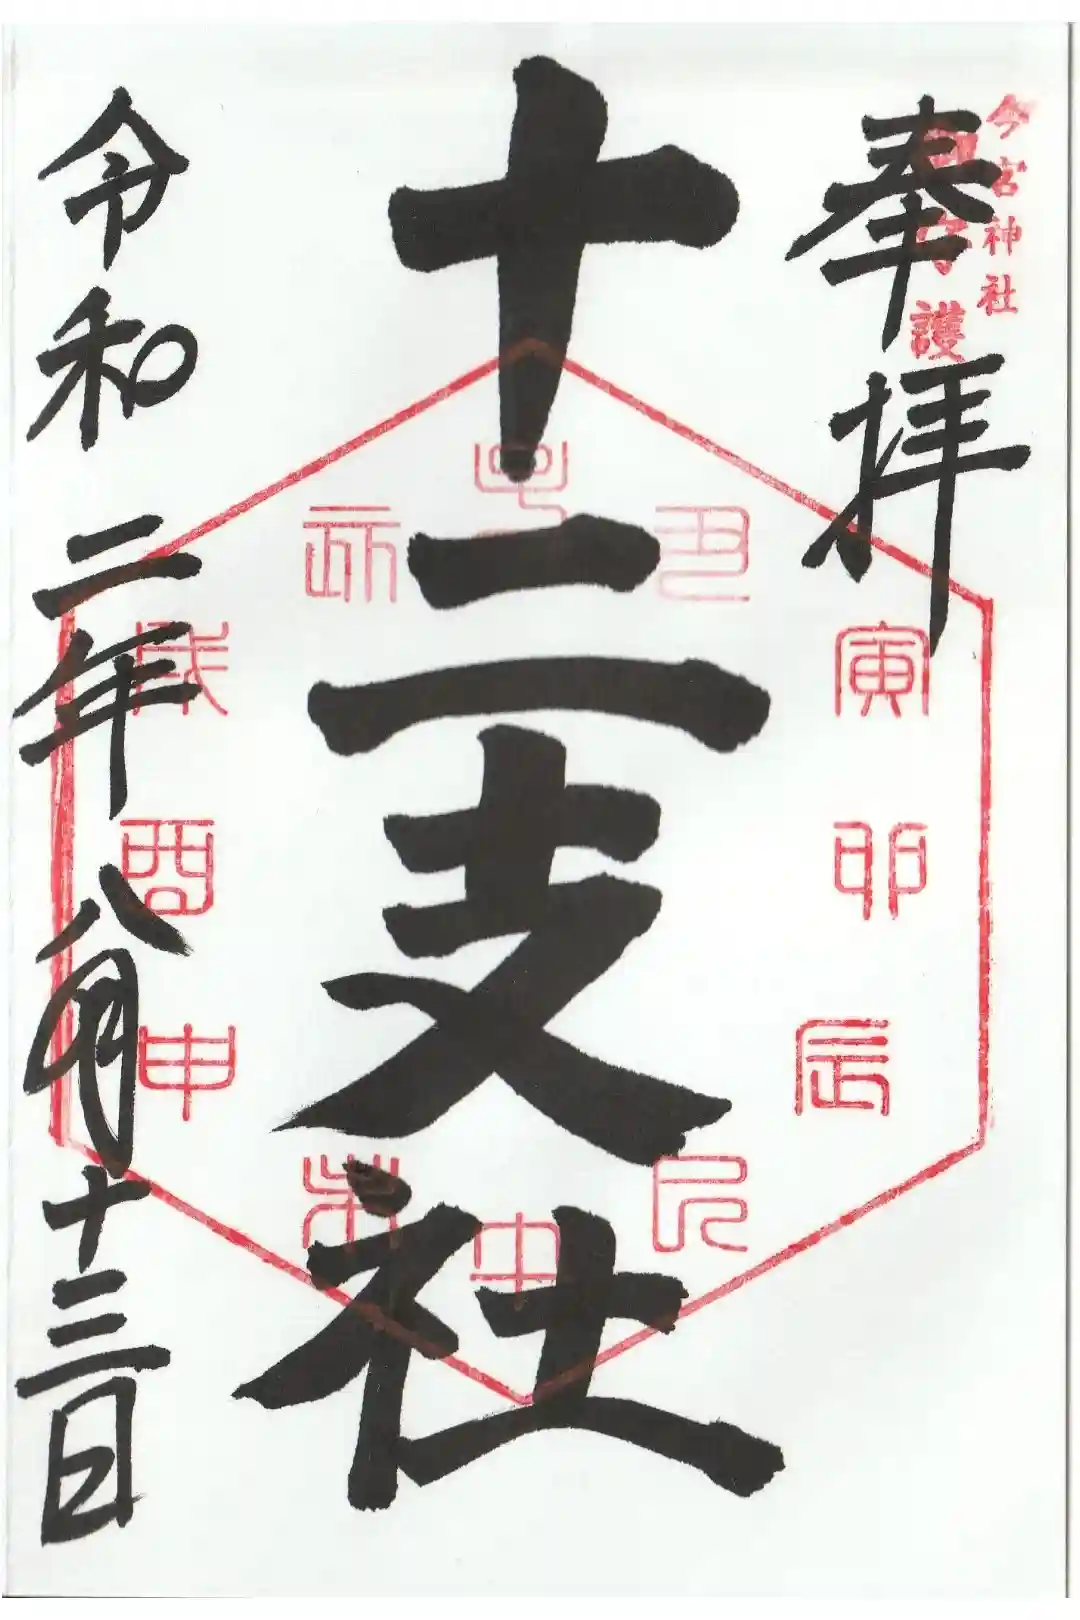 今宮神社
守護
奉拝
十二支社
子
丑
寅
卯
辰
巳
午
未
申
酉
戌
亥
令和二年八月十三日